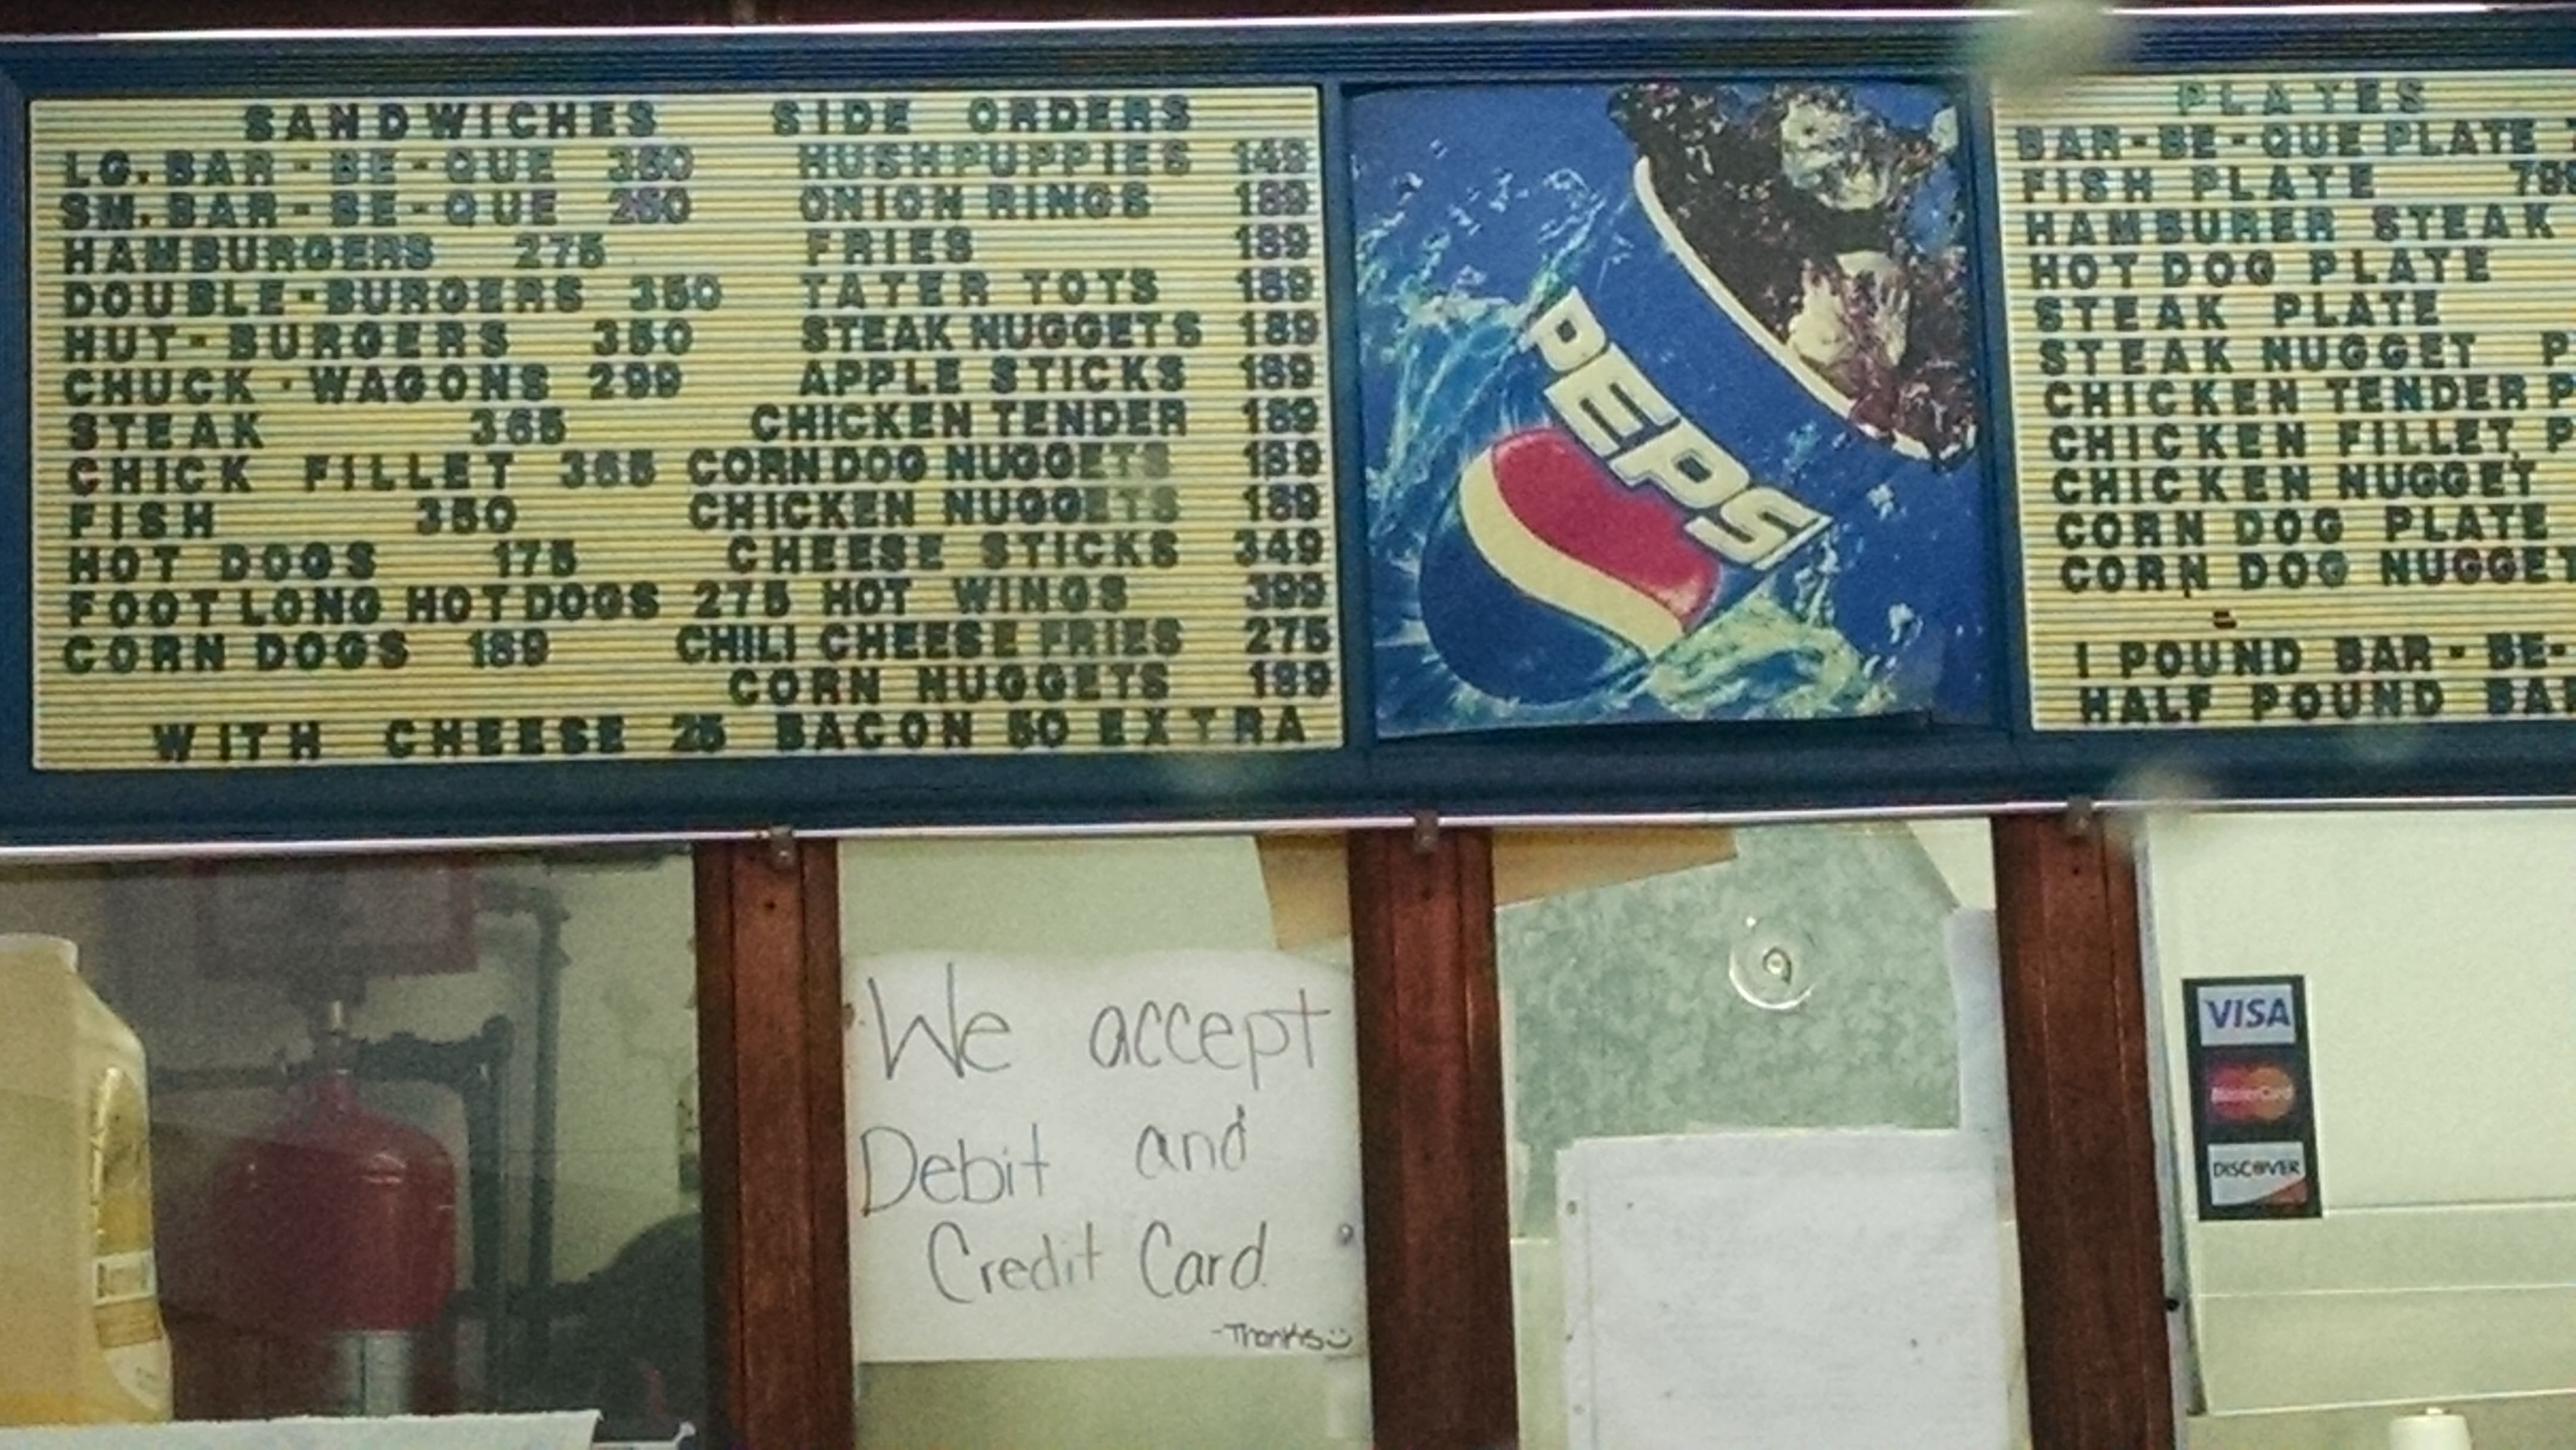 SANDWICHES
LG. BAR-BE-QUE 350
SM. BAR-BE-QUE 250
HAMBURGERS 275
DOUBLE-BURGERS 350
HUT-BURGERS 350
CHUCK-WAGONS 299
STEAK 365
CHICK FILLET 365
FISH 350
HOT DOGS 175
FOOT LONG HOT DOGS 275
CORN DOGS 189
SIDE ORDERS
HUSHPUPPIES 149
ONION RINGS 189
FRIES 189
TATER TOTS 189
STEAK NUGGETS 189
APPLE STICKS 189
CHICKEN TENDER 189
CORN DOG NUGGETS 189
CHICKEN NUGGETS 189
CHEESE STICKS 349
HOT WINGS 399
CHILI CHEESE FRIES 275
CORN NUGGETS 189
WITH CHEESE 25 BACON 50 EXTRA
PEPSI
PLATES
BAR-BE-QUE PLATE
FISH PLATE
HAMBURER STEAK
HOT DOG PLATE
STEAK PLATE
STEAK NUGGET P
CHICKEN TENDER P
CHICKEN FILLET P
CHICKEN NUGGET
CORN DOG PLATE
CORN DOG NUGGET
1 POUND BAR-BE-
HALF POUND BA
We accept
Debit and
Credit Card
-Thanks
VISA
MasterCard
DISCOVER